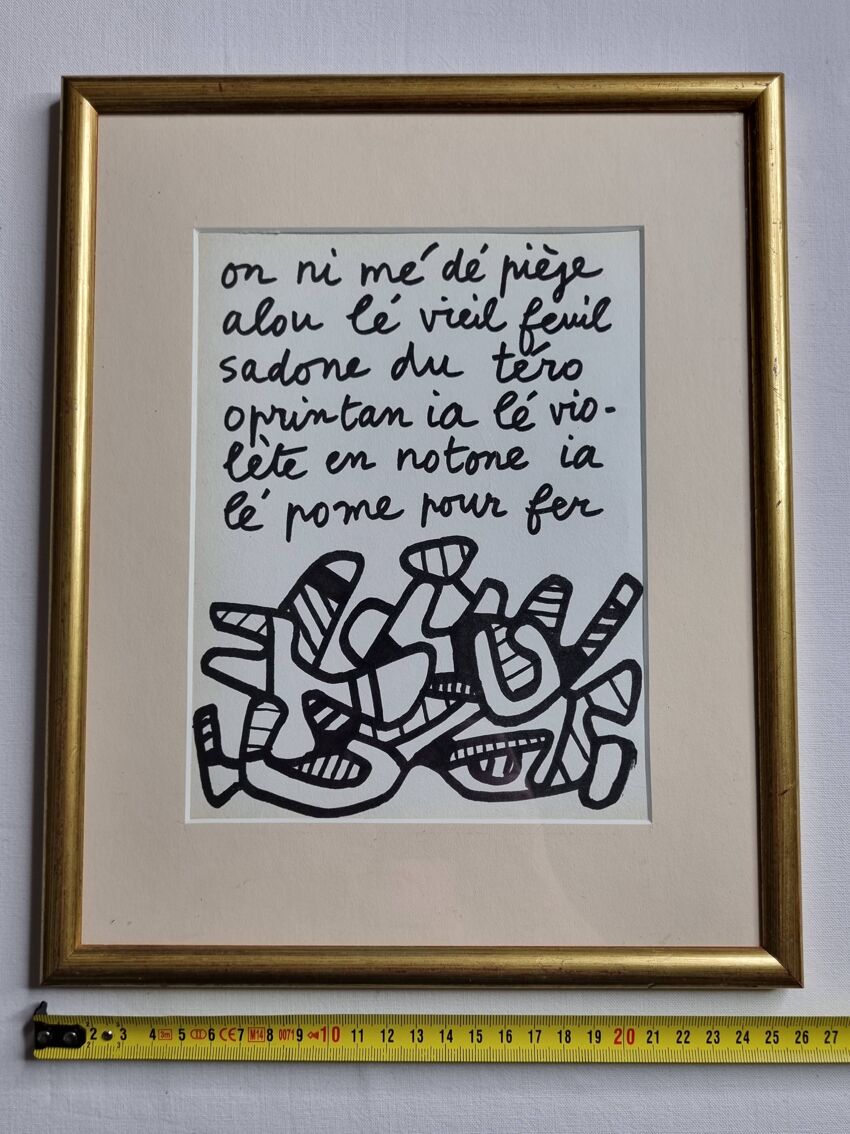 on ni mé dé pièje
alou lé vieil feuil
sadone du téro
oprintan ia lé vio-
lète en notone ia
lé pome pour fer
2 3 4 3m 5 II 6 CE 7 M14 8 0071 9 10 11 12 13 14 15 16 17 18 19 20 21 22 23 24 25 26 27